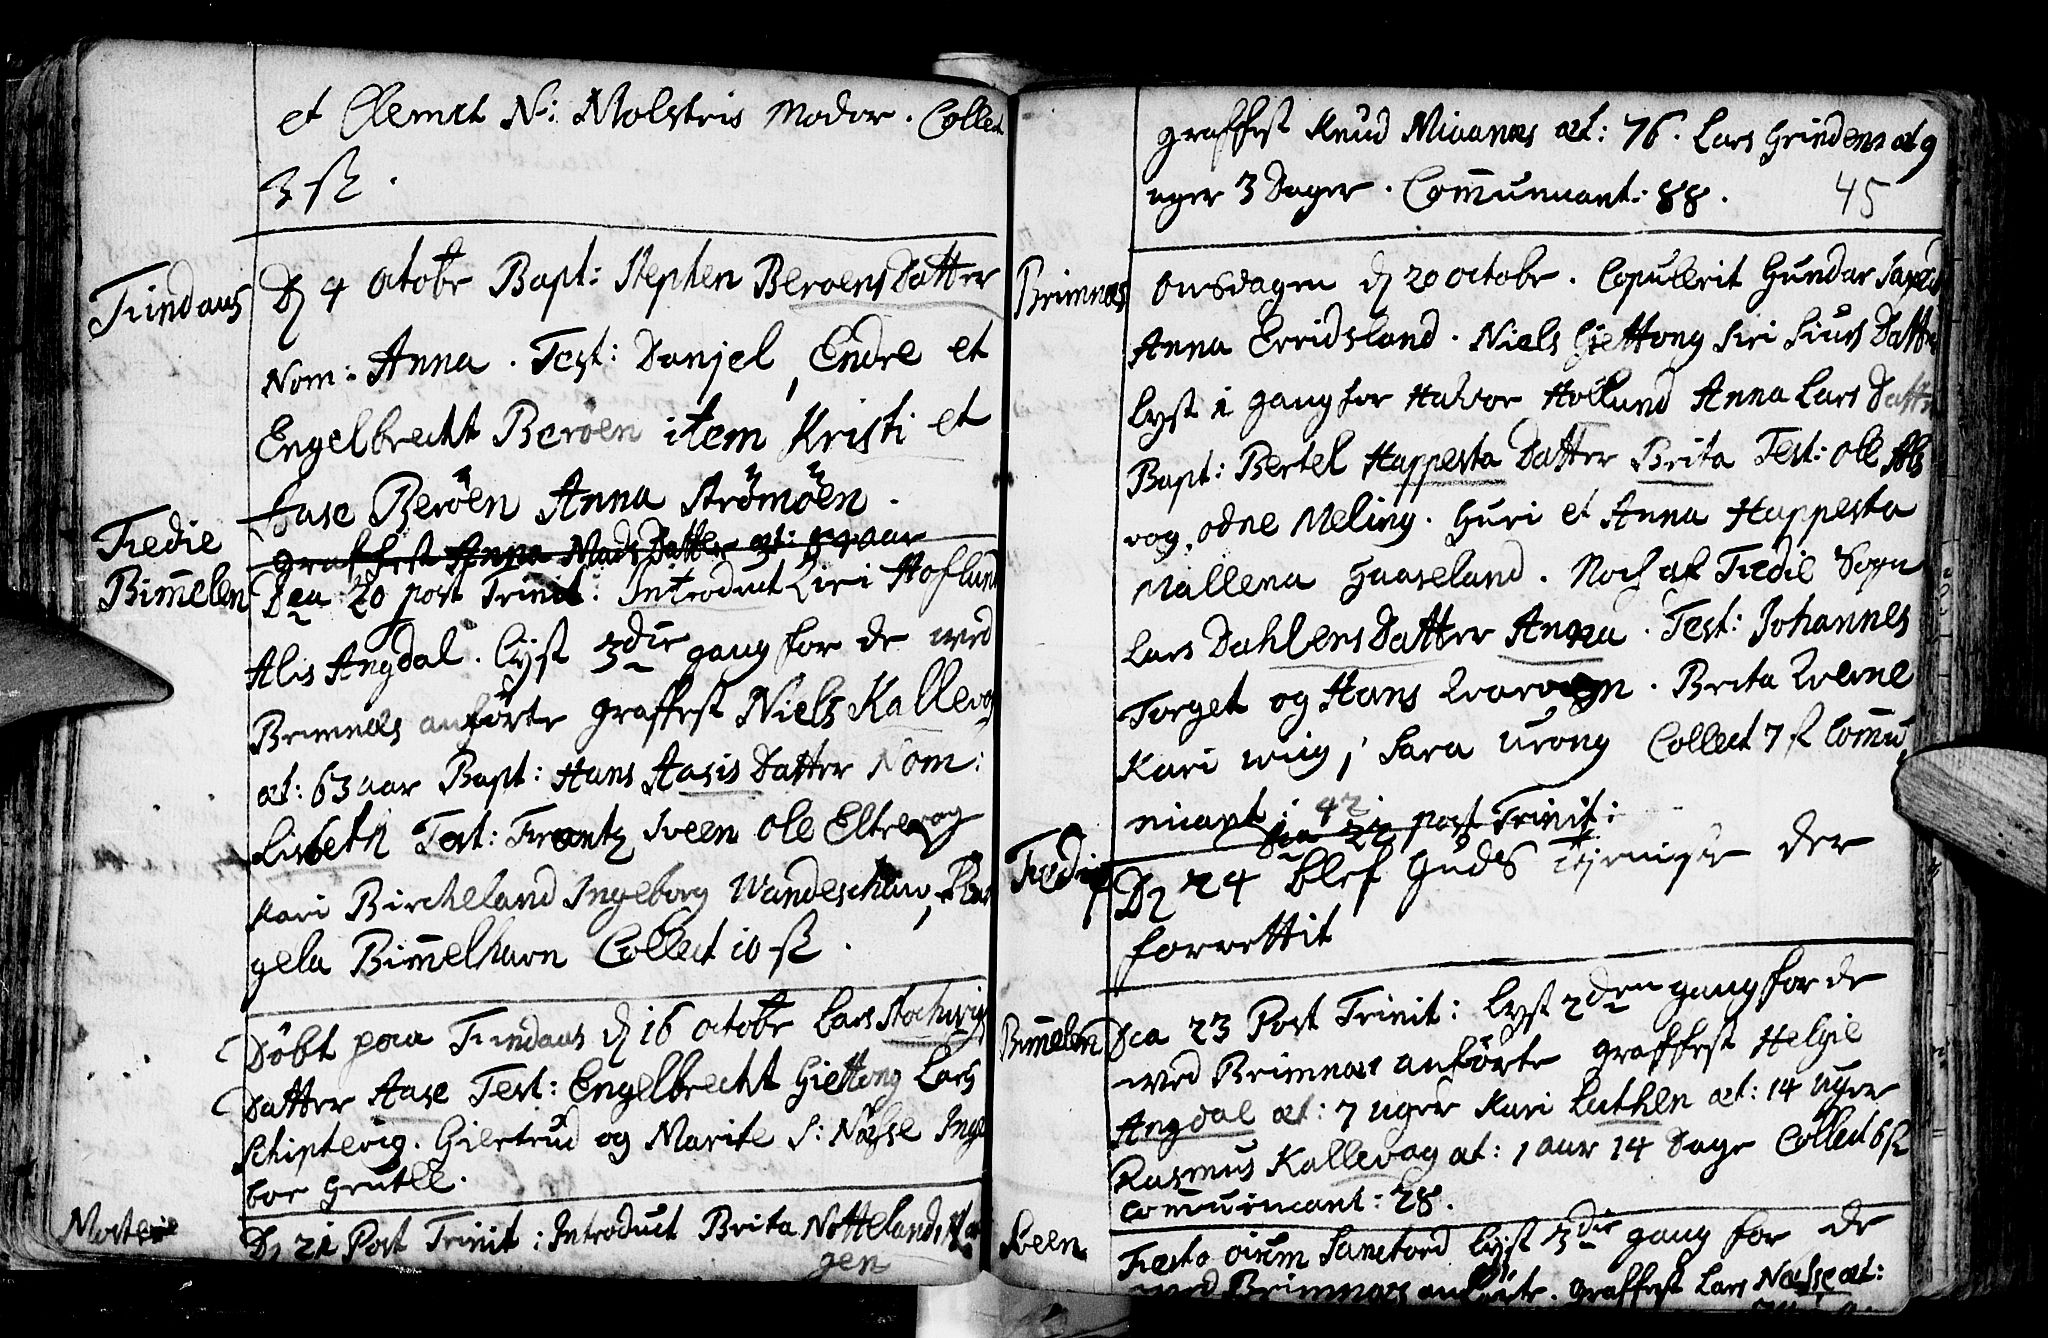 et Clemet N: Molstris Modor. Collect
3 ß.
Tindaas
D 4 octobr Bapt: Stephen Beroens Datter
Nom: Anna. Test: Danjel, Endre et
Engelbrecht Beroen item Kristi et
Aase Beröen Anna Strömöen.
graffest Anna Mads Datter æt: aar
Fiedie
Bimelen
Dca 20 post Trinit: Introduct Liri Hoflund
Alis Angdal. lyst 3die gang for de wed
Brimnæs anförte graffest Niels Kallevog
æt: 63 aar Bapt: Hans Aasis Datter Nom:
Lisbeth Test: Frantz Sveen ole Eltrevog
Kari Bircheland Ingeborg Wandeschaw,
gela Bimelhavn Collect 10 ß.
Döbt paa Tindaas d 16 octobr Lars Stochwigs
Datter Aase Test: Engelbrecht Giettong Lars
Schiptevig. Giertrud og Marite S: Næsse Inge
bor Grutle.
Mosterøe
D 21 Post Trinit: Introduct Brita Nottelands
gen
graffest Knud Miaanæs æt: 76. Lars Grindens æt 9
uger 3 Dager. Comunicant: 88. 45
Brimnæs
onsdagen d 20 octobr. Copulerit Gundar
Anna Erridsland. Niels Giettong Siri Siurs Datter
lyst 1 gang for Halvor Hollund Anna Lars Datter
Bapt: Bertel Happesta Datter Brita Test: ole Als
vog, odne Meling. Guri et Anna Happesta
Mallena Gaaseland. Noch af Fiedie Sogn
Lars Dahlens Datter Anna. Test: Johannes
Torget og Hans. Brita Qverne
Kari wiig, Sara urong Collect 7 ß Comu
nicant: 42
Dca 22 post Trinit:
Fiedie
D 24 blef Guds Tjeniste der
forrettit
Bimelen
Dca 23 Post Trinit: lyst 2den gang for de
wed Brimnæs anförte graffest Helgie
Angdal æt: 7 uger Kari Luthen æt: 14 uger
Rasmus Kallevog æt: 1 aar 14 Dage Collect 6 ß
Comunicant: 28.
Sveen
Festo oium Sanctord lyst 3die gang for de
wed Brimnæs anförte. graffest Lars Næsse æt: